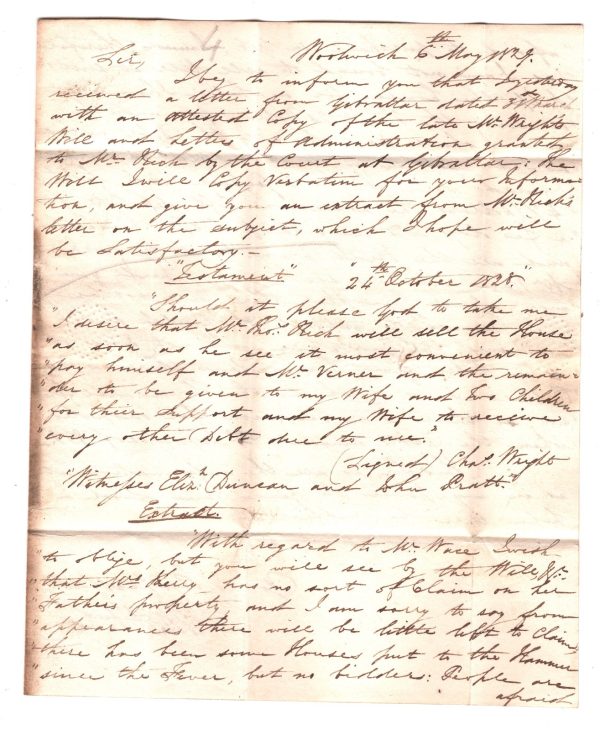 Woolwich 6th May 1829.
Sir,
I beg to inform you that I yesterday
received a letter from Gibraltar dated 3d March
with an attested Copy of the late Mr. Wright's
Will and Letters of Administration granted
to Mr. Rich by the Court at Gibraltar: The
Will I will Copy Verbatim for your Informa-
tion, and give you an extract from Mr. Rich's
letter on the subject, which I hope will
be Satisfactory.-
"Testament" "24th October 1828."
"Should it please God to take me
"I desire that Mr. Thos. Rich will sell the House
"as soon as he see it most convenient to
"pay himself and Mr. Verner and the remain-
"der to be given to my Wife and two Children
"for their support and my Wife to receive
"every other Debt due to me."
(Signed) Chas. Wright
"Witnesses Elizth. Duncan and John Pratt."
Extract
"With regard to Mr. Wace I wish
"to oblige, but you will see by the Will &c.
"that Mrs. Kerry has no sort of Claim on her
"Fathers property, and I am sorry to say from
"appearances there will be little left to Claim,
"there has been some Houses put to the Hammer
"since the Fever, but no bidders: People are
afraid